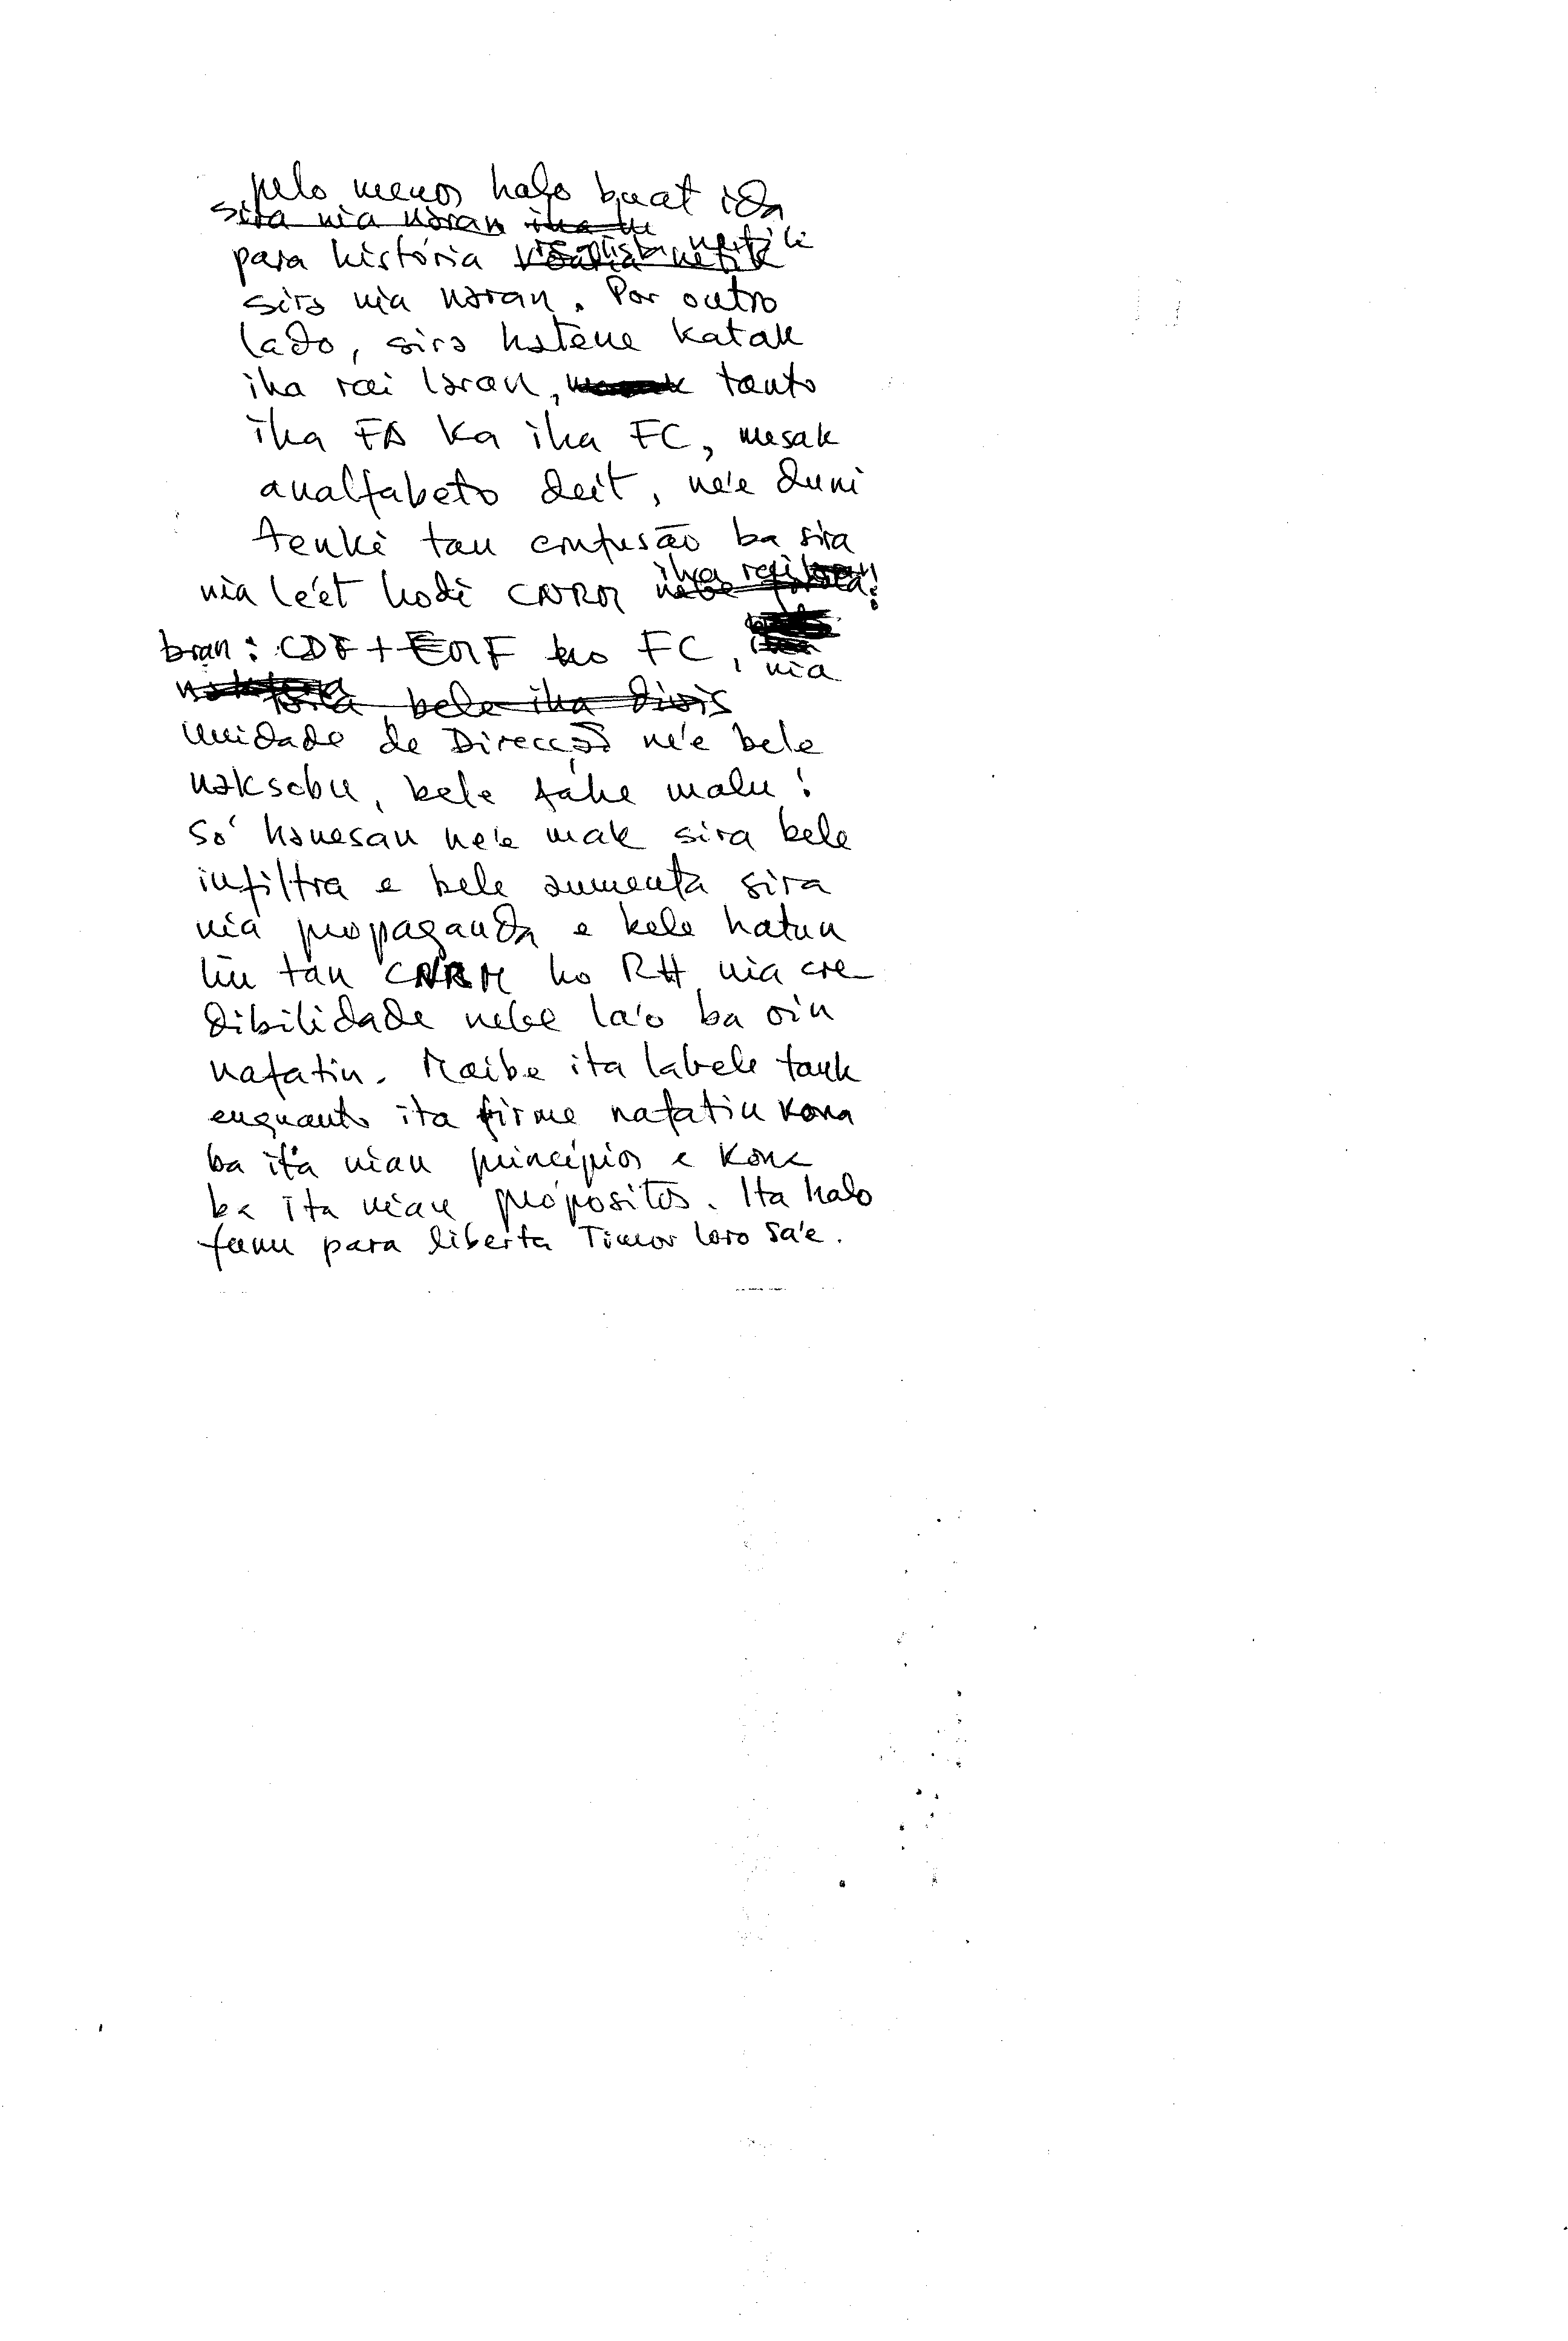 pelo menos halo buat ida
sira nia naran iha
para história regista netik
sira nia naran. Por outro
lado, sira hatene katak
iha rai laran, tanto
iha FA ka iha FC, mesak
analfabeto deit, ne'e duni
tenki tau confusão ba sira
nia le'et hodi CNRM iha rai laran
bran: CDF + EMF ho FC, nia
bele iha
Unidade de Direcção ne'e bele
naksobu, bele fahe malu!
Só hanesan ne'e mak sira bele
infiltra e bele aumenta sira
nia propaganda e bele hatun
liu tan CNRM ho RH nia cre-
dibilidade nebe la'o ba oin
nafatin. Maibe ita labele tauk
enquanto ita firme nafatin kona
ba ita nian princípios e kona
ba ita nian própositos. Ita halo
funu para liberta Timor Loro Sa'e.